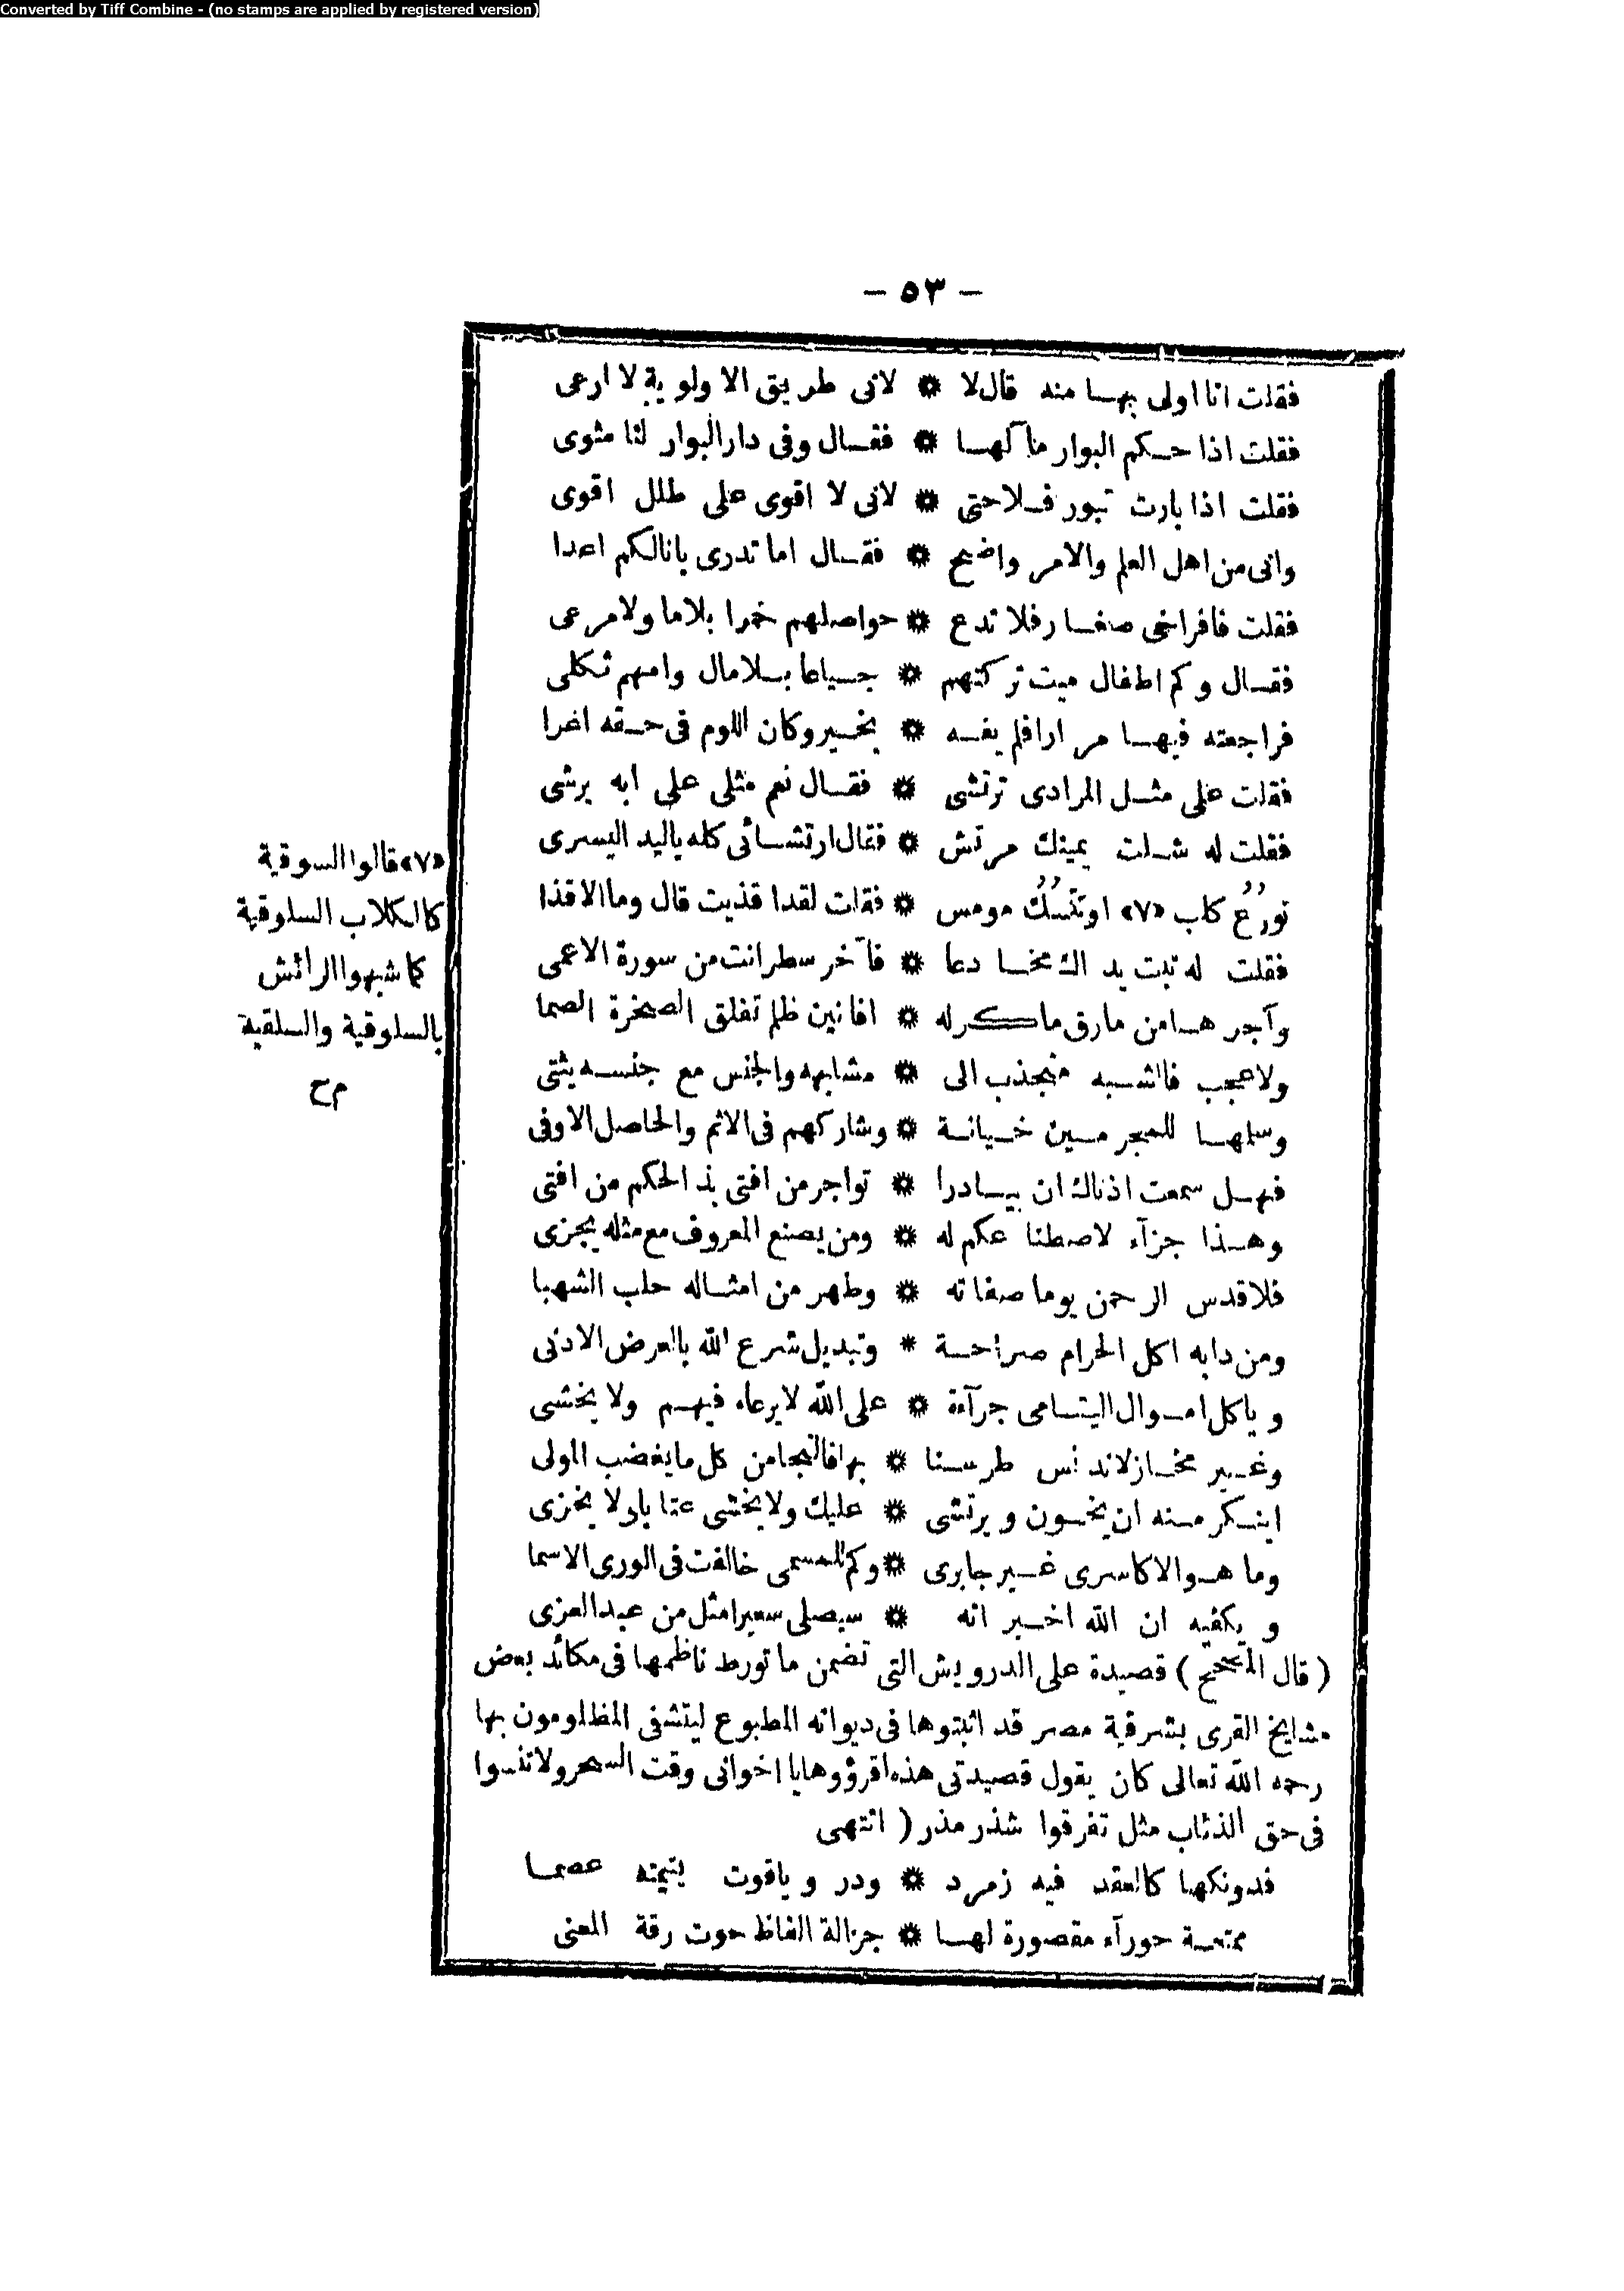 Converted by Tiff Combine - (no stamps are applied by registered version)
- ٥٣ -
فقلت انا اولى بهـا منه قال لا * لانى طريق الاولوية لا ارعى
فقلت اذا حـكم البوار مآلهـا * فقـال وفى دار البوار لنا مثوى
فقلت اذا بارت تبور فـلاحتى * لانى لا اقوى على طلل اقوى
وانى من اهل العلم والامر واضح * فقـال اما تدرى بانالكم اعدا
فقلت فافراخى صغـار فلا تدع * حواصلهم حمرا بلاما ولا مرعى
فقـال وكم اطفال ميت تركتهم * جـياعا بـلا مال وامهم ثكلى
فراجعته فيهـا مرارا فلم يفـه * بخـير وكان اللوم فى حـقه اغرا
فقلت على مثـل المرادى ترتشى * فقـال نعم مثلى على ابه يرشى
فقلت له شـلت يمينك مرتش * فقال ارتشـائى كله باليد اليسرى
تورُّعُ كلب «٧» او تنسُّكُ مومس * فقلت لقد اقذيت قال وما الاقذا
فقلت له تبت يداك مخـادعا * فآخر سطر انت من سورة الاعمى
وآجرهـا من مارق ماكر له * افانين ظلم تفلق الصخرة الصما
ولا عجب فالشـبه منجذب الى * مشابهه والجنس مع جنسـه يثنى
وسلهـا للمجرمـين خـيانـة * وشاركهم فى الاثم والحاصل الاوفى
فهـل سمعت اذناك ان بيـادرا * تواجر من افتى بذا الحكم من افتى
وهـذا جزآء لاصطناعكم له * ومن يصنع المعروف مع مثله يجزى
فلا قدس الرحمن يوما صفاته * وطهر من امثـاله حلب الشهبا
ومن دابه اكل الحرام صراحـة * وتبديل شرع الله بالعرض الادنى
وياكل امـوال اليتـامى جرآءة * على الله لا يرعاه فيهـم ولا يخشى
وغـير مخـاز لا ندنس طرسـنا * بها فالهجا من كل ما يغضب المولى
اينـكر مـنه ان يخـون ويرتشى * عليك ولا يخشى عتابا ولا يخزى
وما هـو الا كاسرى غـير جابرى * وكم للمسمى خالفت فى الورى الاسما
ويكفيه ان الله اخـبر انه * سيصلى سعيرا مثل من عبد العزى
(قال المصحح) قصيدة على الدرويش التى تضمن ما تورط ناظمها فى مكائد بعض
مشايخ القرى بشرقية مصر قد اثبتوها فى ديوانه المطبوع ليتشفى المظلومون بها
رحمه الله تعالى كان يقول قصيدتى هذه اقرؤوها يا اخوانى وقت السحر ولا تنسوا
فى حق الذئاب مثل تفرقوا شذر مذر ( انتهى
فدونكها كالعقد فيه زمرد * ودر وياقوت يتيمته عصمـا
ممتعـة حورآء مقصورة لهـا * جزالة الفاظ حوت رقة المعنى
«٧» قالوا السوقية
كالكلاب السلوقية
كما شبهوا الرائش
بالسلوقية والسلقية
م ح